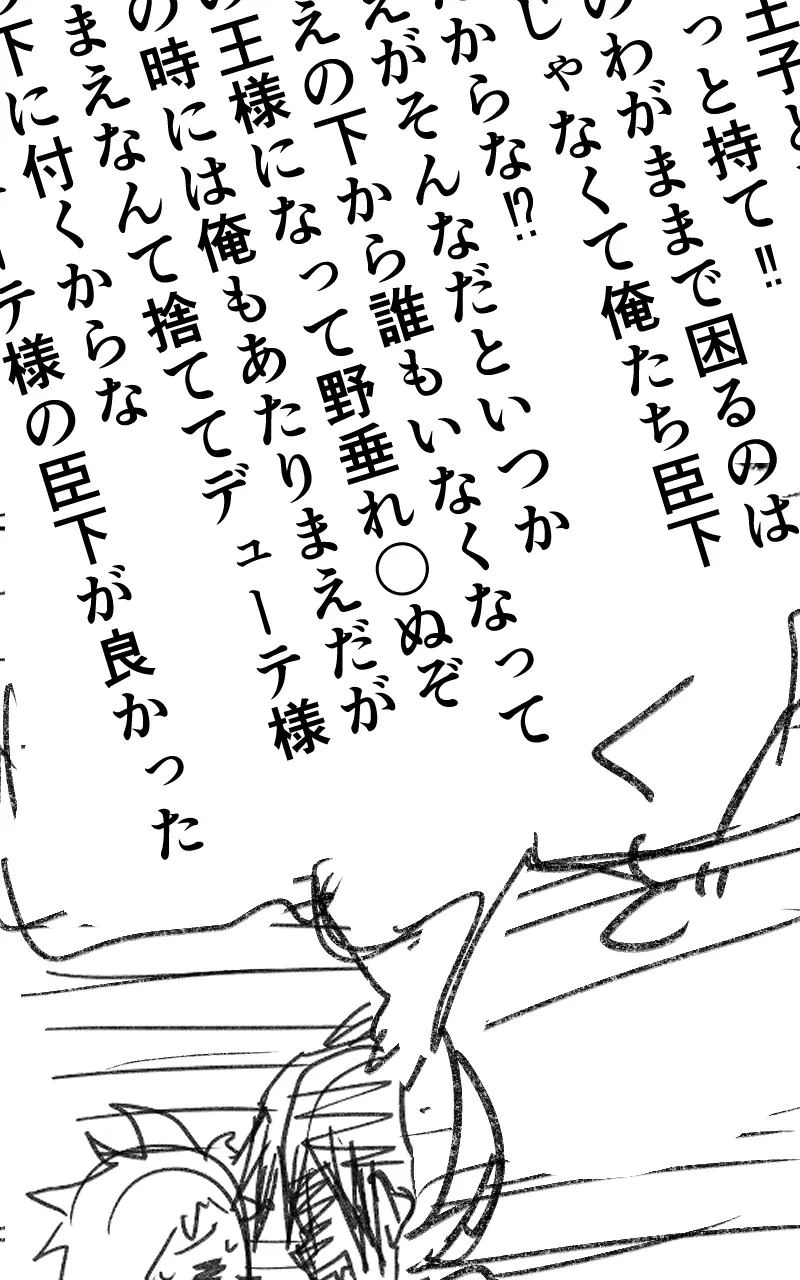 王子と
っと持て!!
のわがままで困るのは
じゃなくて俺たち臣下
からな!?
えがそんなだといつか
えの下から誰もいなくなって
の王様になって野垂れ○ぬぞ
の時には俺もあたりまえだが
まえなんて捨ててデューテ様
下に付くからな
ーテ様の臣下が良かった